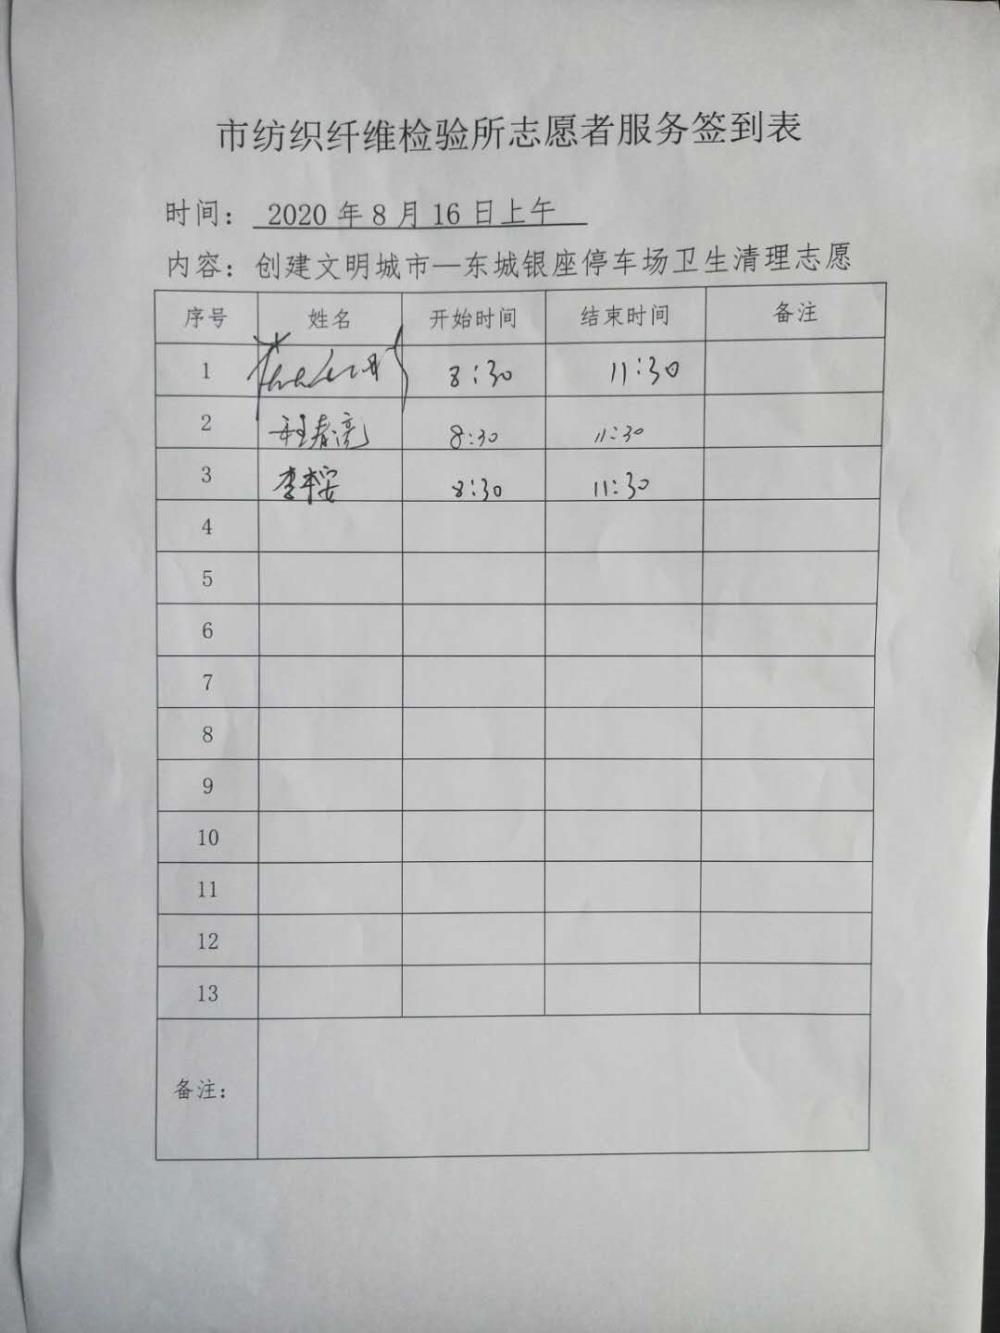 市纺织纤维检验所志愿者服务签到表
时间: 2020 年 8 月 16 日上午
内容: 创建文明城市—东城银座停车场卫生清理志愿
序号 姓名 开始时间 结束时间 备注
1 8:30 11:30
2 春亮 8:30 11:30
3 李本安 8:30 11:30
4
5
6
7
8
9
10
11
12
13
备注: